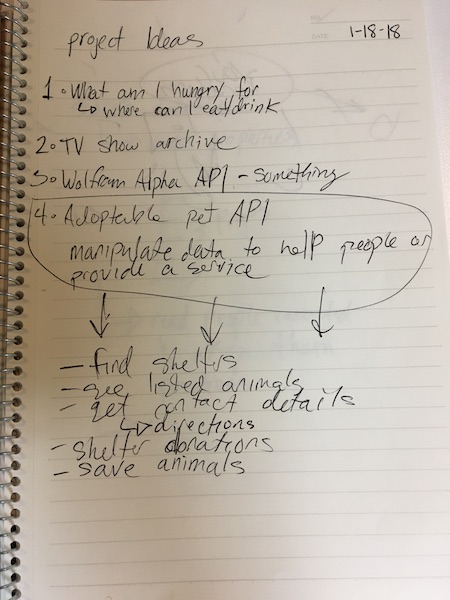 project Ideas
1-18-18
1. What am I hungry for
↳ where can I eat/drink
2. TV show archive
3. Wolfram Alpha API - something
4. Adoptable pet API
manipulate data to help people or
provide a service
- find shelters
- see listed animals
- get contact details
↳ directions
- shelter donations
- save animals